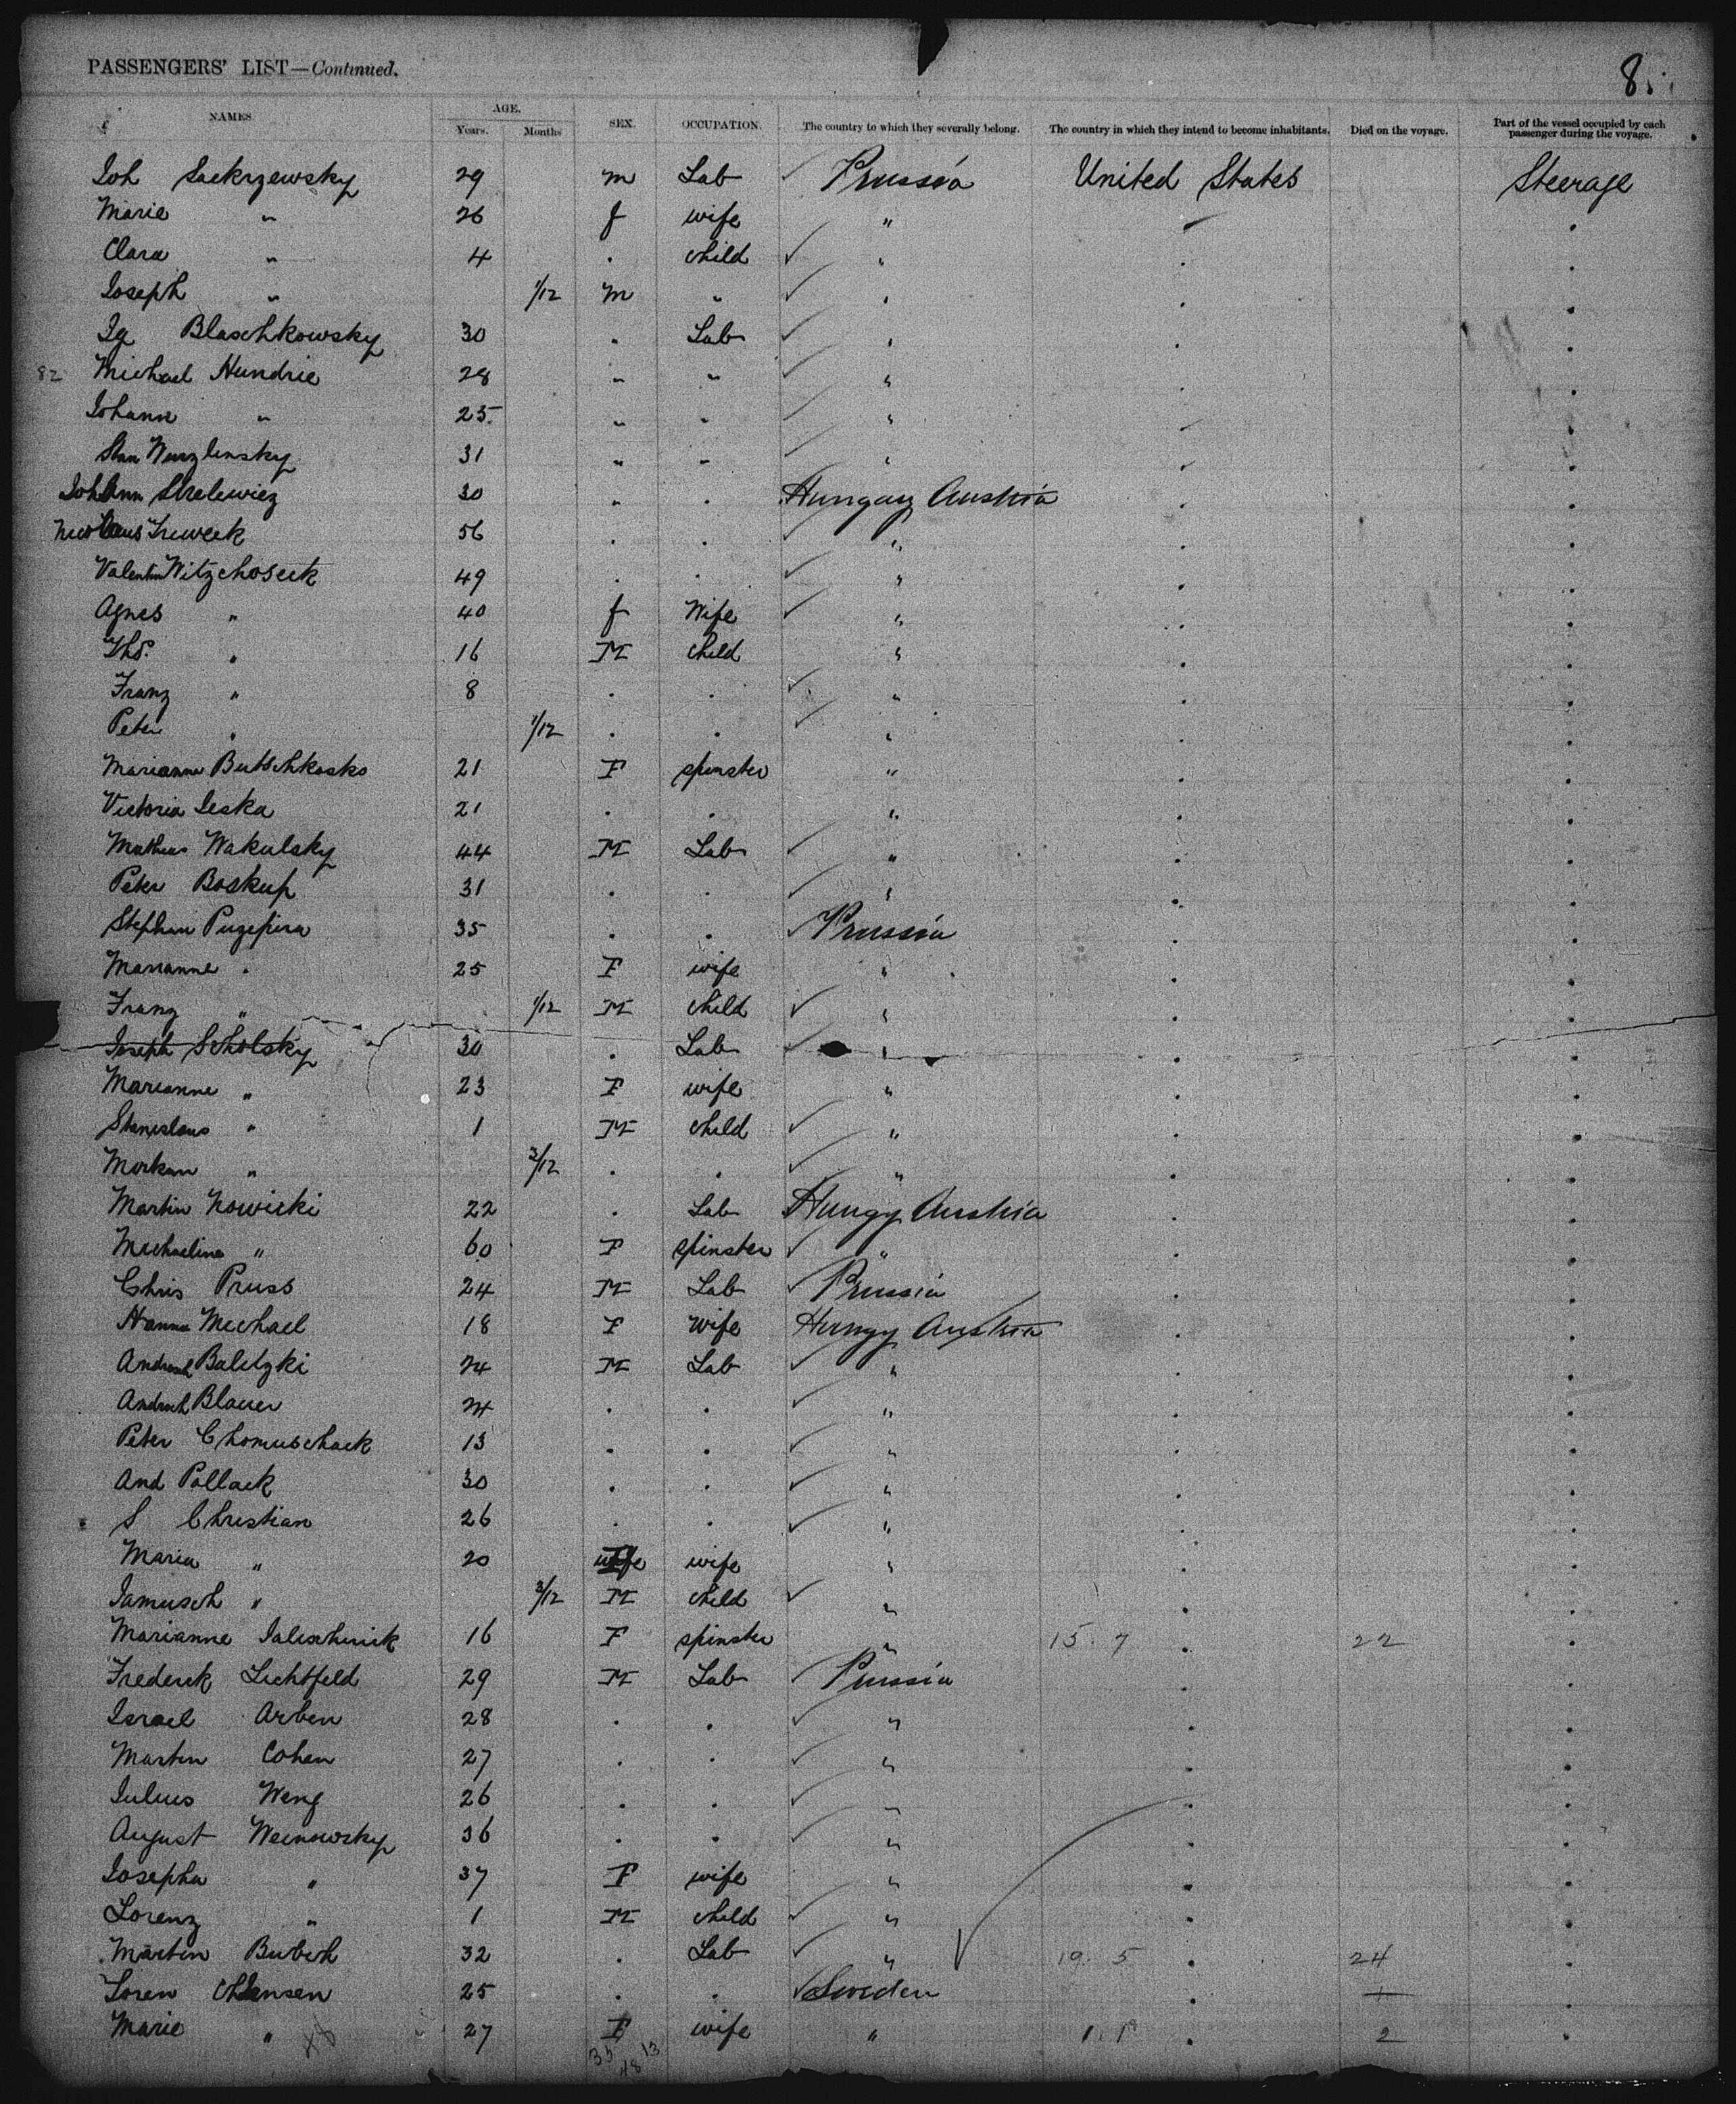 PASSENGERS' LIST—Continued.
8.
NAMES AGE. SEX. OCCUPATION. The country to which they severally belong. The country in which they intend to become inhabitants. Died on the voyage. Part of the vessel occupied by each passenger during the voyage.
Years. Months
Joh Sackrzewsky 29 m Lab Prussia United States Steerage
Marie " 26 f wife "
Clara " 4 . child "
Joseph " 1/12 m " "
Ig Blaschkowsky 30 . Lab "
82 Michael Hundrie 28 " " "
Johann " 25 " " "
Stan Wenzlensky 31 " " "
Johann Strelewicz 30 " . Hungay Austria
Treweek 56 . . "
Valentin Witzchoseck 49 . . "
Agnes " 40 f Wife "
Ths. " 16 M child "
Franz " 8 . . "
Peter " 1/12 . . "
Marianne Butschkosko 21 F spinster "
Victoria Leska 21 . . "
Mathias Wakulsky 44 M Lab "
Peter Boskup 31 . . "
Stephan Puzepira 35 . . Prussia
Marianne " 25 F wife "
Franz " 1/12 M child "
Joseph Scholsky 30 . Lab "
Marianne " 23 F wife "
Stanislaus " 1 M child "
" 3/12 . . "
Martin Nowicki 22 . Lab Hungy Austria
Michaelina " 60 F spinster "
Chris Pruss 24 M Lab Prussia
Hanna Michael 18 F wife Hungy Austria
Balitzki 24 M Lab "
Blauer 24 . . "
Peter Chomuschack 13 . . "
And Pollack 30 . . "
S Christian 26 . . "
Maria " 20 wife wife "
Jamusch " 3/12 M child "
Marianne Jalischnick 16 F spinster " 15. 7 22
Frederick Lichtfeld 29 M Lab Prussia
Israel Arben 28 . . "
Martin Cohen 27 . . "
Julius Weng 26 . . "
August Weinowsky 36 . . "
Josepha " 37 F wife "
Lorenz " 1 M child "
Martin Bubsch 32 . Lab " 19. 5 24
Soren 25 . . Sweden
Marie " 27 F wife " 1. 1 2
35 48 13